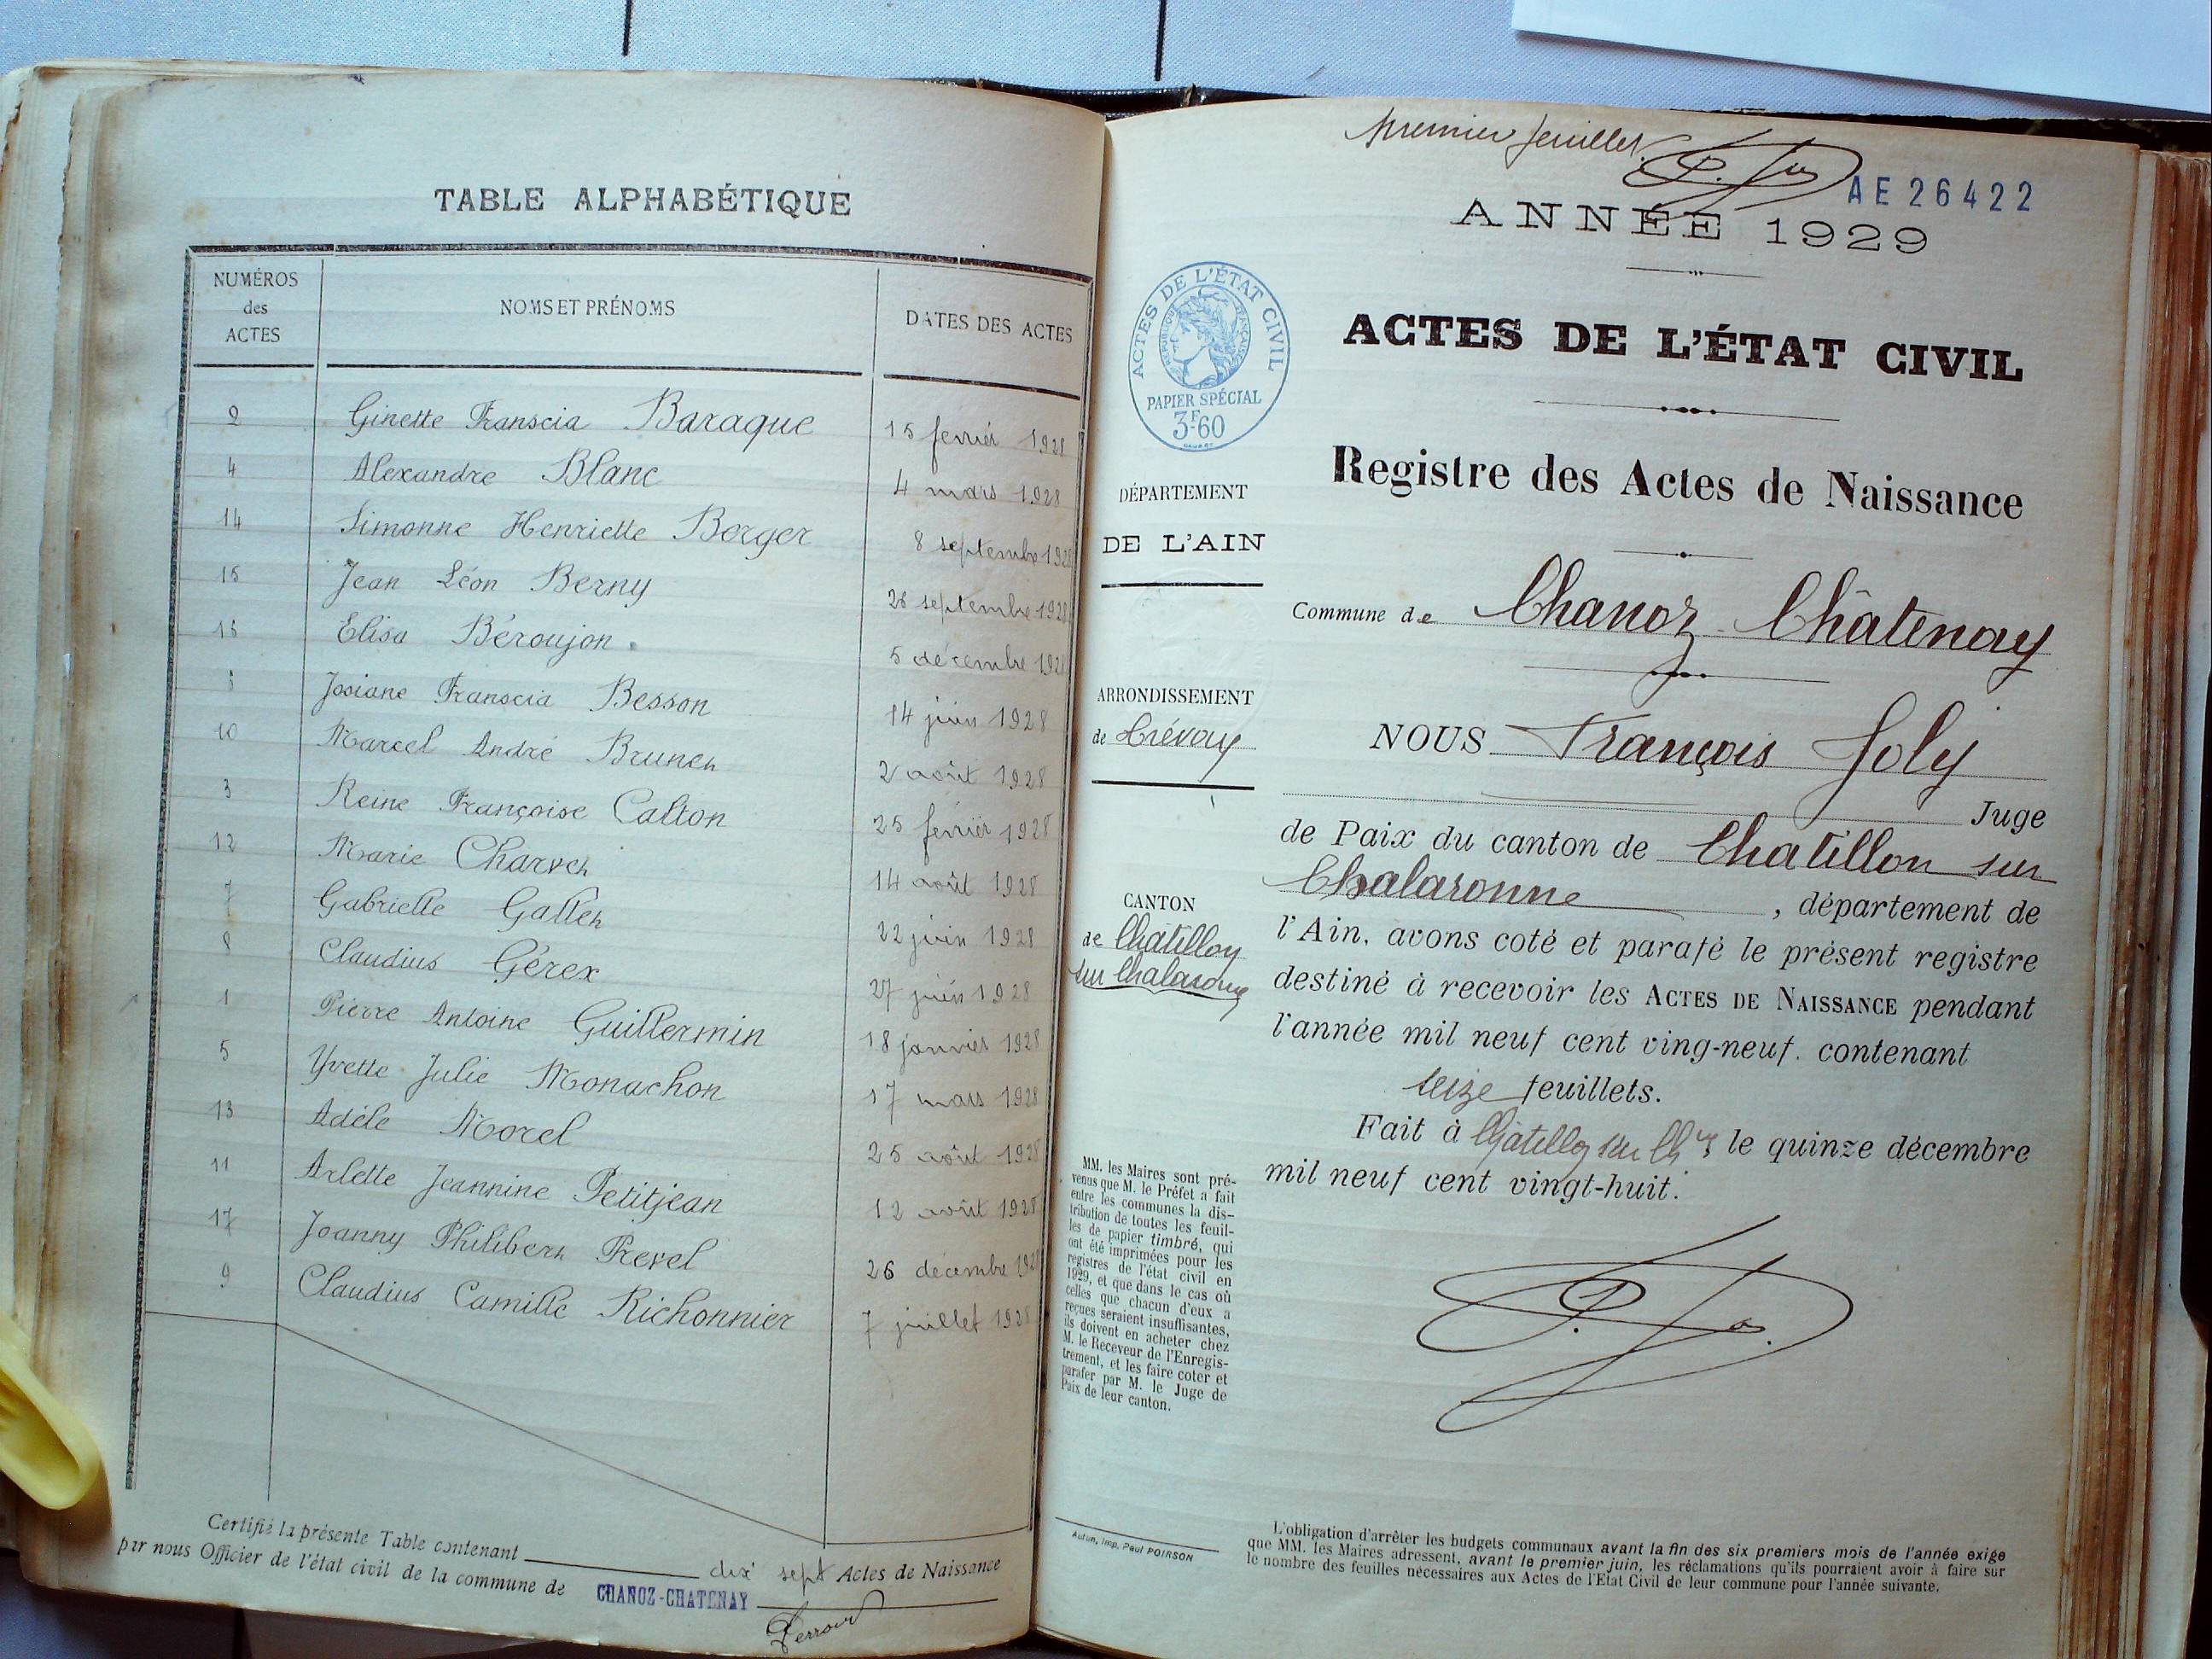 TABLE ALPHABÉTIQUE
NUMÉROS
des
ACTES
NOMS ET PRÉNOMS
DATES DES ACTES
2 Ginette Franscia Baraque 15 fevrier 1928
4 Alexandre Blanc 4 mars 1928
14 Simonne Henriette Borger 8 septembre 1928
15 Jean Léon Berny 26 septembre 1928
16 Elisa Béroujon 5 décembre 1928
Josiane Franscia Besson 14 juin 1928
10 Marcel André Brunet 2 août 1928
3 Reine Françoise Calton 25 fevrier 1928
12 Marie Charvet 14 août 1928
7 Gabrielle Gallet 22 juin 1928
8 Claudius Gérex 27 juin 1928
1 Pierre Antoine Guillermin 18 janvier 1928
5 Yvette Julie Monachon 17 mars 1928
13 Adèle Morel 25 août 1928
11 Arlette Jeannine Petitjean 12 août 1928
17 Joanny Philibert Prevel 26 décembre 1928
9 Claudius Camille Richonnier 7 juillet 1928
Certifié la présente Table contenant dix sept Actes de Naissance
par nous Officier de l'état civil de la commune de CHANOZ-CHATENAY
premier feuillet
AE 26422
ANNÉE 1929
ACTES DE L'ÉTAT CIVIL
RÉPUBLIQUE FRANÇAISE
PAPIER SPÉCIAL
3F60
ACTES DE L'ÉTAT CIVIL
Registre des Actes de Naissance
DÉPARTEMENT
DE L'AIN
Commune de Chanoz Châtenay
ARRONDISSEMENT
de Trévoux
NOUS François Joly
Juge
de Paix du canton de Chatillon sur
Chalaronne, département de
l'Ain, avons coté et parafé le présent registre
destiné à recevoir les ACTES DE NAISSANCE pendant
l'année mil neuf cent ving-neuf. contenant
seize feuillets.
Fait à Châtillon sur Ch ne le quinze décembre
mil neuf cent vingt-huit.
CANTON
de Châtillon
sur Chalaronne
MM. les Maires sont pré-
venus que M. le Préfet a fait
entre les communes la dis-
tribution de toutes les feuil-
les de papier timbré, qui
ont été imprimées pour les
registres de l'état civil en
1929, et que dans le cas où
celles que chacun d'eux a
reçues seraient insuffisantes,
ils doivent en acheter chez
M. le Receveur de l'Enregis-
trement, et les faire coter et
parafer par M. le Juge de
Paix de leur canton.
Autun, Imp. Paul POIRSON
L'obligation d'arrêter les budgets communaux avant la fin des six premiers mois de l'année exige
que MM. les Maires adressent, avant le premier juin, les réclamations qu'ils pourraient avoir à faire sur
le nombre des feuilles nécessaires aux Actes de l'Etat Civil de leur commune pour l'année suivante.